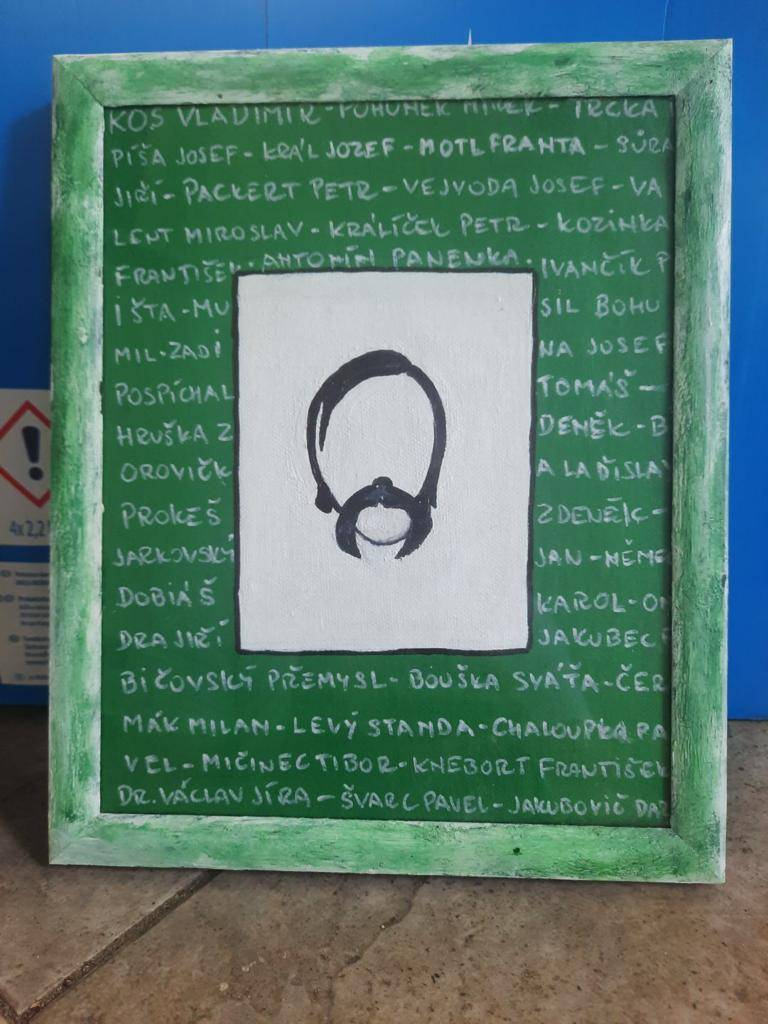 KOS VLADIMÍR - POHUNEK MIREK - TRČKA
PÍŠA JOSEF - KRÁL JOZEF - MOTL FRANTA - SŮRA
JIŘÍ - PACKERT PETR - VEJVODA JOSEF - VA
LENT MIROSLAV - KRÁLÍČEK PETR - KOZINKA
FRANTIŠEK - ANTONÍN PANENKA - IVANČÍK P
IŠTA - MU SIL BOHU
MIL - ZADI NA JOSEF
POSPÍCHAL TOMÁŠ -
HRUŠKA Z DENĚK - B
OROVIČK A LADISLAV
PROKEŠ ZDENĚK -
JARKOVSKÝ JAN - NĚME
DOBIÁŠ KAROL - ON
DRA JIŘÍ JAKUBEC F
BIČOVSKÝ PŘEMYSL - BOUŠKA SVÁŤA - ČER
MÁK MILAN - LEVÝ STANDA - CHALOUPKA PA
VEL - MIČINEC TIBOR - KNEBORT FRANTIŠEK
DR. VÁCLAV JÍRA - ŠVARC PAVEL - JAKUBOVIČ DAR
4x2,2l